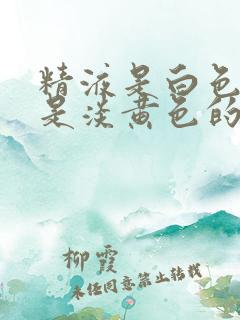 精液是白色
是淡黄色的
柳霞
未经同意禁止转载